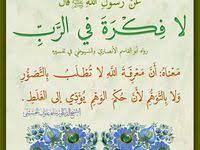 عَنْ رَسُولِ اللهِ ﷺ قَالَ
لَا فِكْرَةَ فِي الرَّبِّ
رواه أبو القاسم الأنصاري والسيوطي في تفسيره
مَعْنَاهُ: أَنَّ مَعْرِفَةَ اللهِ لَا تُطْلَبُ بِالتَّصَوُّرِ
وَلَا بِالتَّوَهُّمِ لِأَنَّ حُكْمَ الوَهْمِ يُؤَدِّي إِلَى الغَلَطِ.